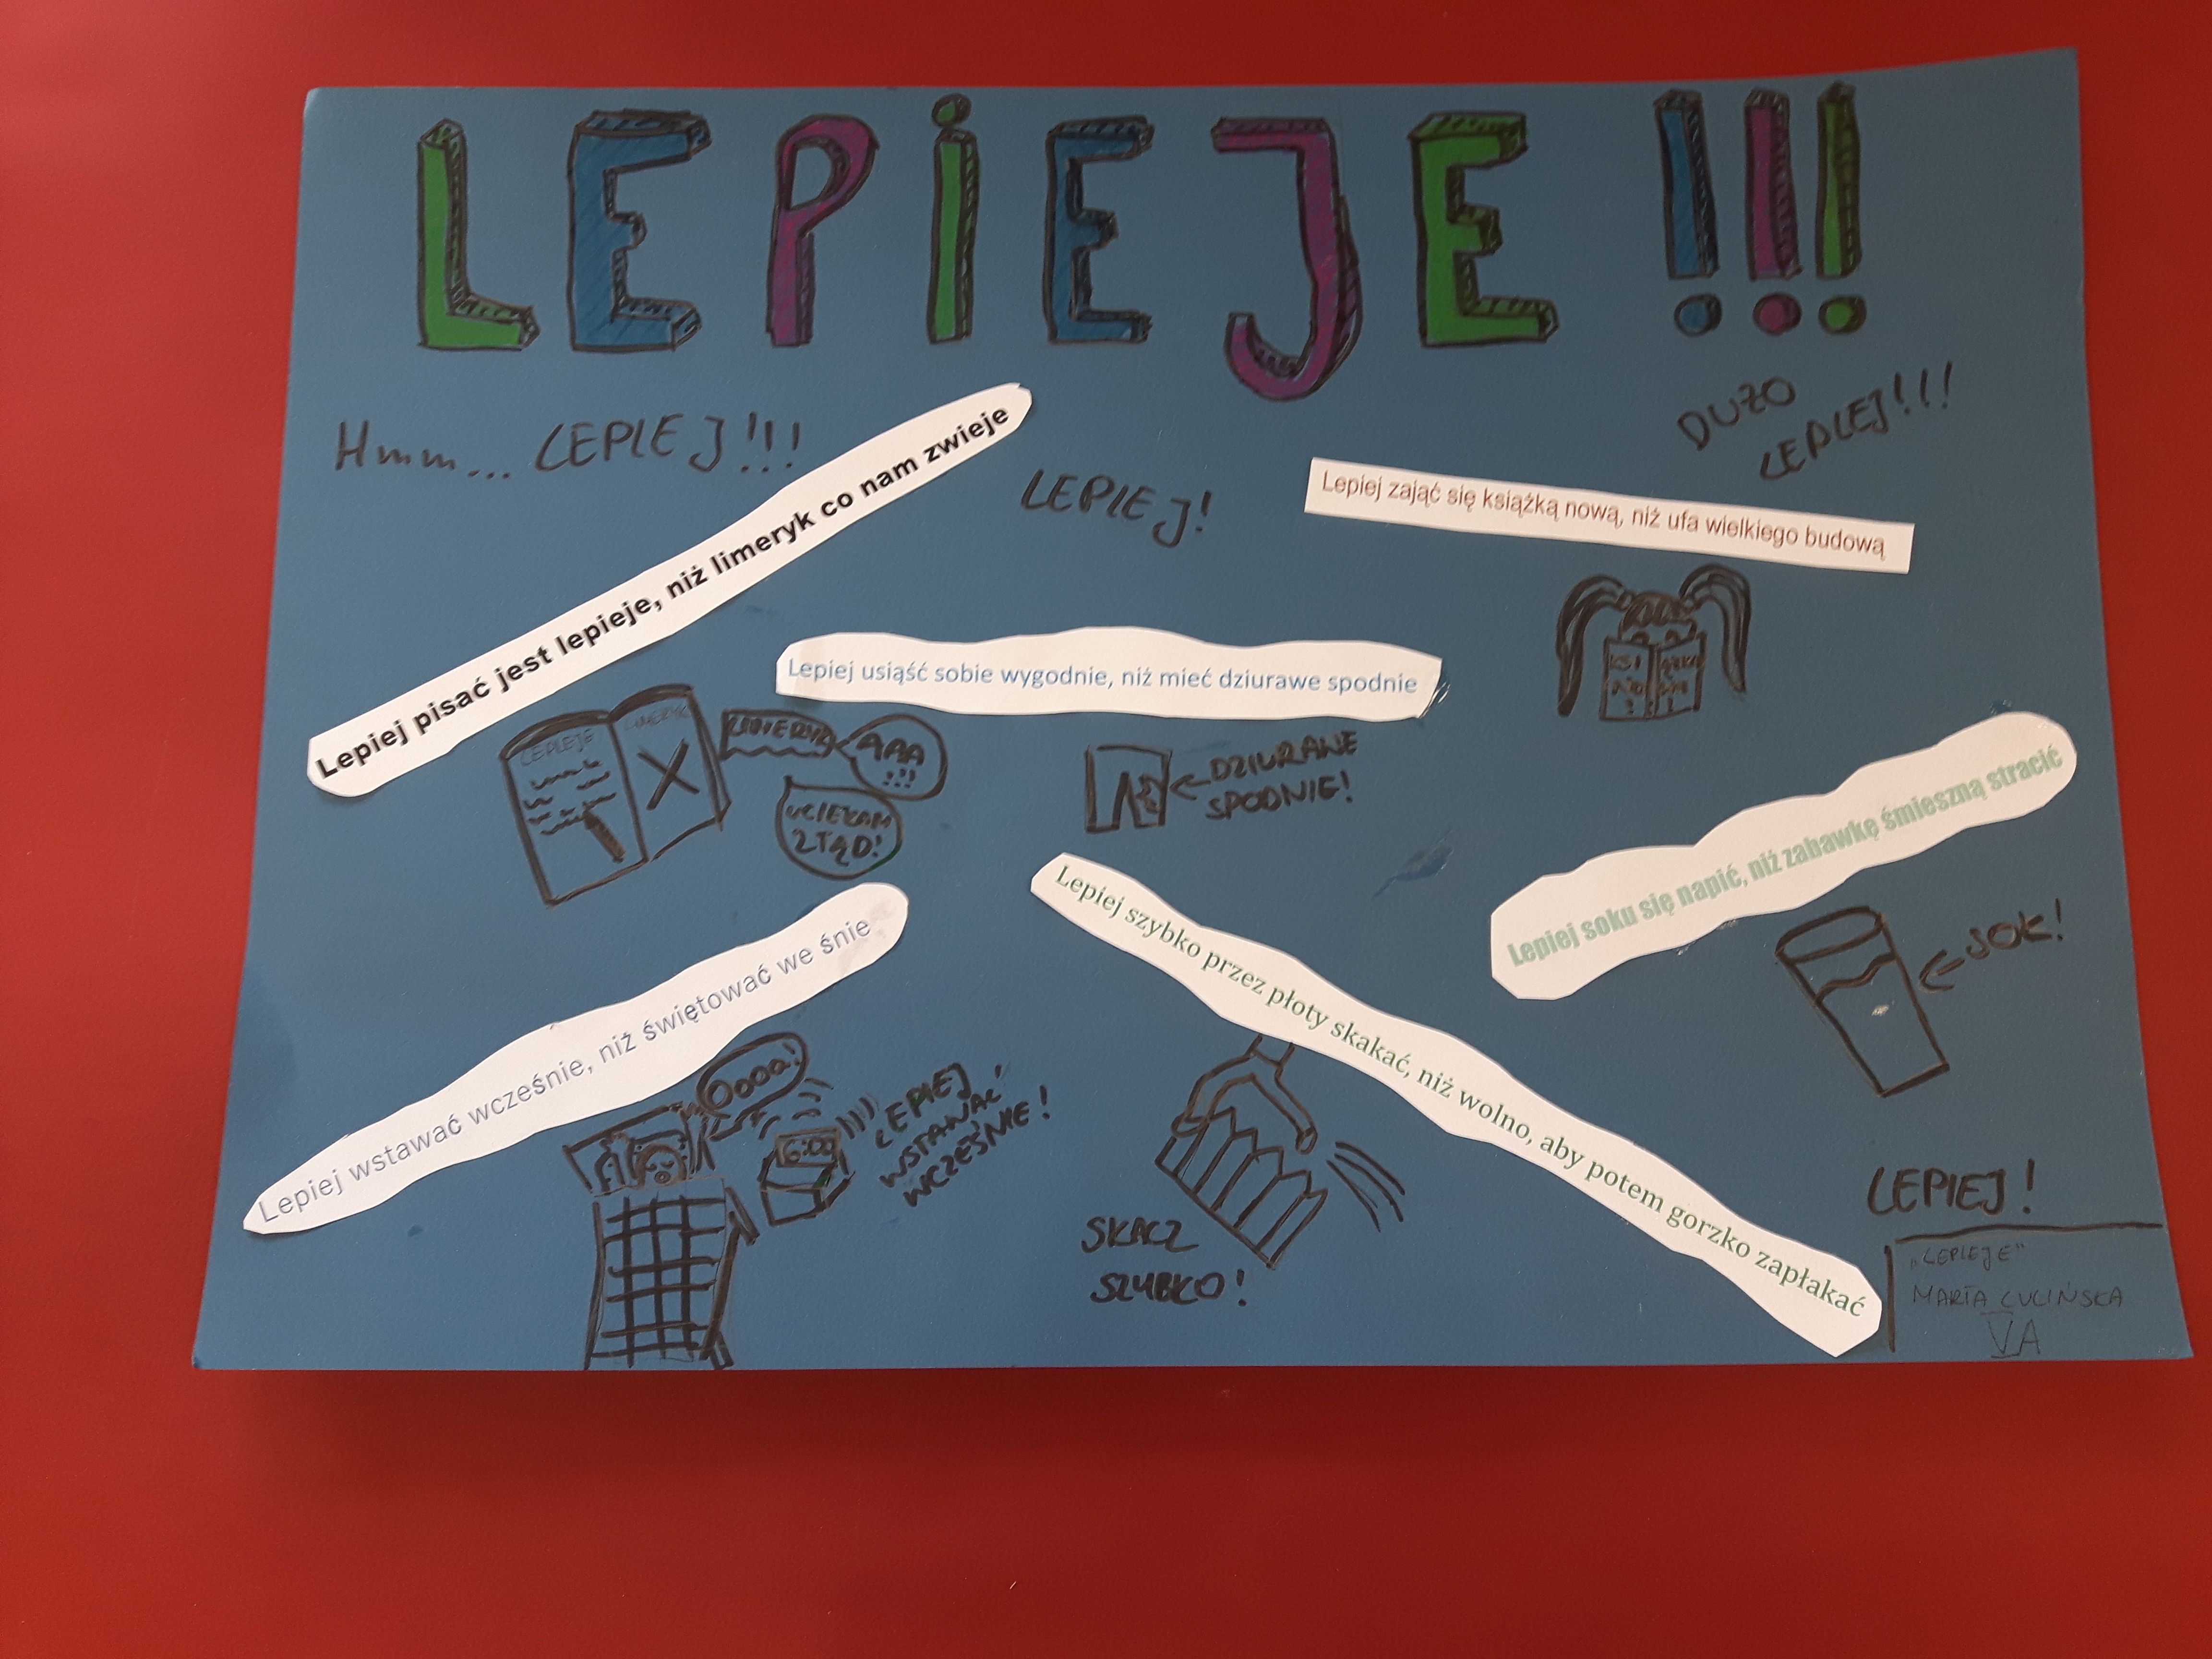 LEPiEJE!!!
Hmm... LEPIEJ!!!
DUŻO
LEPIEJ!!!
LEPIEJ!
Lepiej pisać jest lepieje, niż limeryk co nam zwieje
Lepiej zająć się książką nową, niż ufa wielkiego budową
Lepiej usiąść sobie wygodnie, niż mieć dziurawe spodnie
LEPIEJE
LIMERYK
LIMERYK
AAA
!!!
UCIEKAM
ZTĄD!
DZIURAWE
SPODNIE!
Lepiej soku się napić, niż zabawkę śmieszną stracić
SOK!
Lepiej wstawać wcześnie, niż świętować we śnie
Oooa!
6:00
LEPIEJ
WSTAWAĆ
WCZEŚNIE!
Lepiej szybko przez płoty skakać, niż wolno, aby potem gorzko zapłakać
SKACZ
SZYBKO!
LEPIEJ!
„LEPIEJE"
MARTA LULIŃSKA
VA